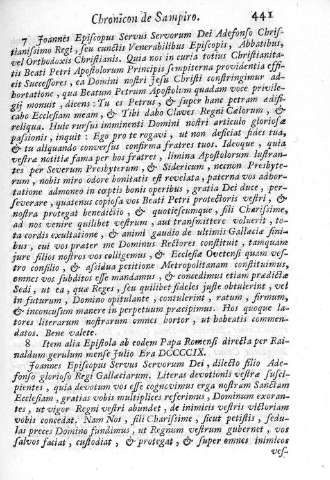 Chronicon de Sampiro. 441
7 Joannes Episcopus Servus Servorum Dei Adefonso Chris-
tianissimo Regi, seu cunctis Venerabilibus Episcopis, Abbatibus,
vel Orthodoxis Christianis. Quia nos in cura totius Christianita-
tis Beati Petri Apostolorum Principis sempiterna providentia effi-
cit Successores, ea Domini nostri Jesu Christi constringimur ad-
hortatione, qua Beatum Petrum Apostolum quadam voce privile-
gij monuit, dicens: Tu es Petrus, & super hanc petram ædifi-
cabo Ecclesiam meam, & Tibi dabo Claves Regni Cælorum, &
reliqua. Huic rursus imminenti Domini nostri articulo gloriosæ
passionis, inquit: Ego pro te rogavi, ut non deficiat fides tua,
& tu aliquando conversus confirma fratres tuos. Ideoque, quia
vestra notitia fama per hos fratres, limina Apostolorum lustran-
tes per Severum Presbyterum, & Sidericum, necnon Presbyte-
rum, nobis miro odore bonitatis est revelata, paterna vos adhor-
tatione admoneo in cœptis bonis operibus, gratia Dei duce, per-
severare, quatenus copiosa vos Beati Petri protectoris vestri, &
nostra protegat benedictio, & quotiescumque, fili Charissime,
ad nos venire quilibet vestrum, aut transmittere voluerit, to-
ta cordis exultatione, & animi gaudio de ultimis Gallæciæ fini-
bus, cui vos præter me Dominus Rectores constituit, tamquam
jure filios nostros vos colligemus, & Ecclesiæ Ovetensi quam ves-
tro consilio, & assidua petitione Metropolitanam constituimus,
omnes vos subditos esse mandamus, & concedimus etiam prædictæ
Sedi, ut ea, quæ Reges, seu quilibet fideles juste obtulerint, vel
in futurum, Domino opitulante, contulerint, ratum, firmum,
& inconcusum manere in perpetuum præcipimus. Hos quoque la-
tores literarum nostrarum omnes hortor, ut habeatis commen-
datos. Bene valete.
8 Item alia Epistola ab eodem Papa Romensi directa per Rai-
naldum gerulum mense Julio Era DCCCCIX.
Joannes Episcopus Servus Servorum Dei, dilecto filio Ade-
fonso glorioso Regi Gallæciarum. Literas devotionis vestræ susci-
pientes, quia devotum vos esse cognovimus erga nostram Sanctam
Ecclesiam, gratias vobis multiplices referimus, Dominum exoran-
tes, ut vigor Regni vestri abundet, de inimicis vestris victoriam
vobis concedat. Nam Nos, fili Charissime, sicut petistis, sedu-
las preces Domino fundimus, ut Regnum vestrum gubernet, vos
salvos faciat, custodiat, & protegat, & super omnes inimicos
ves-